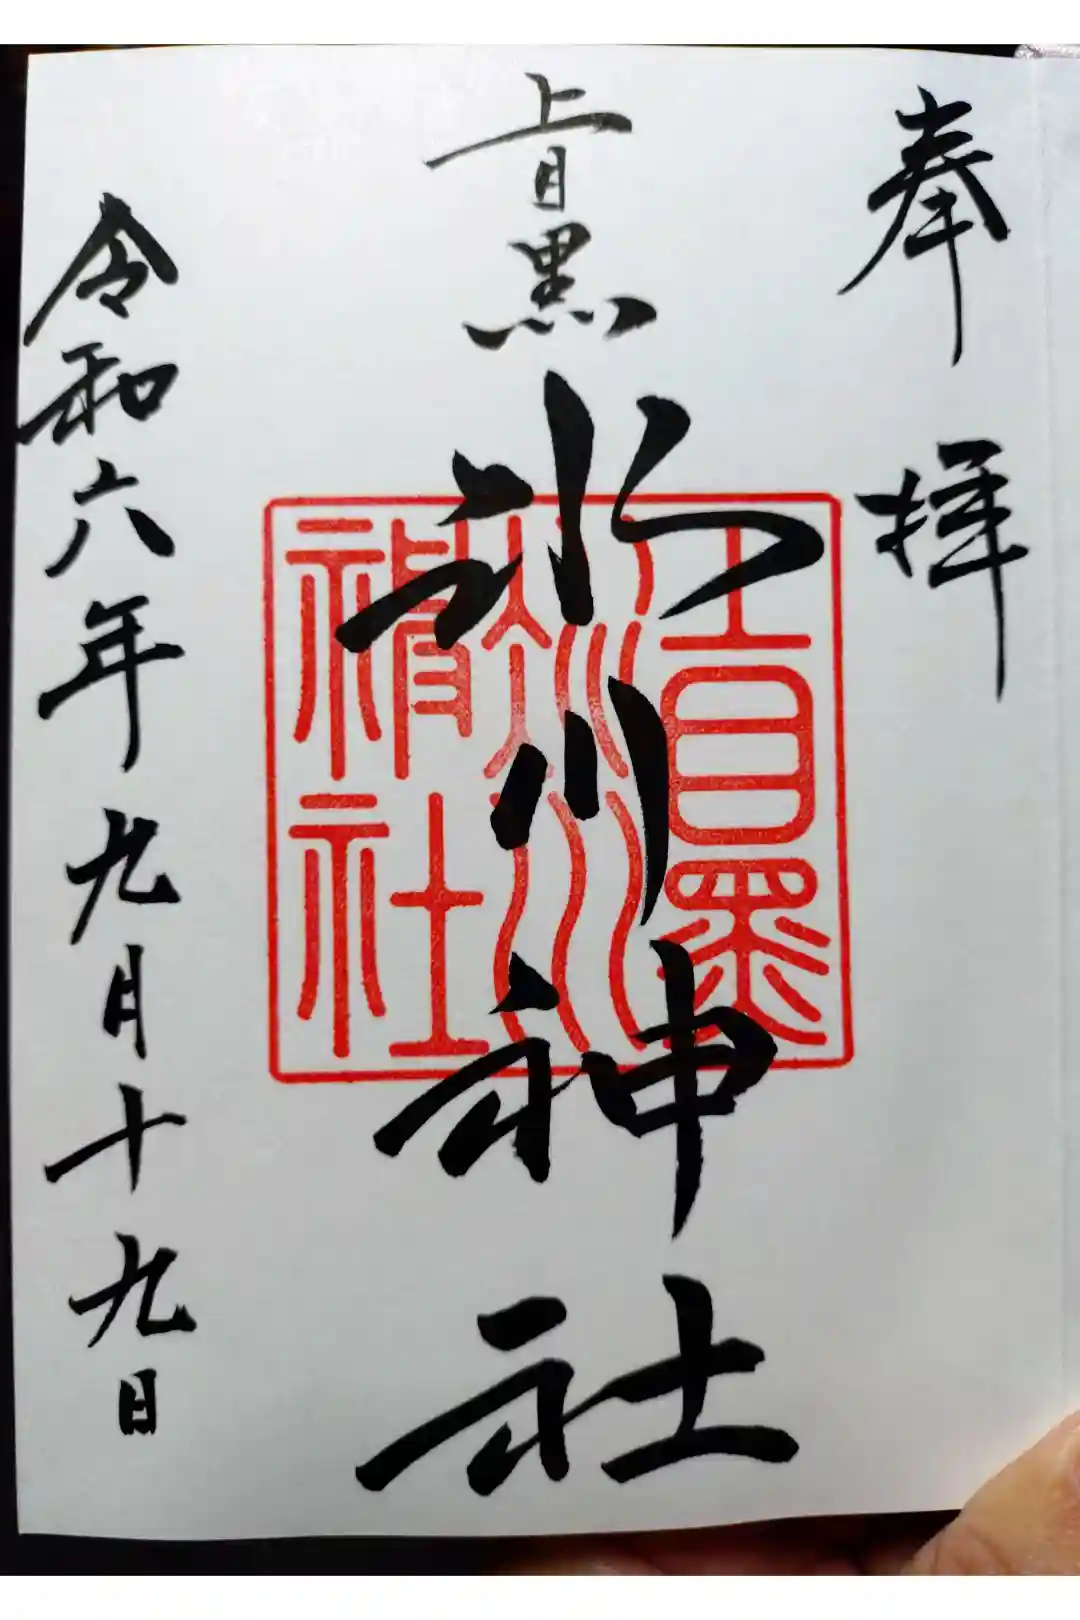 奉拝
上目黒氷川神社
上目黒
氷川
神社
令和六年九月十九日